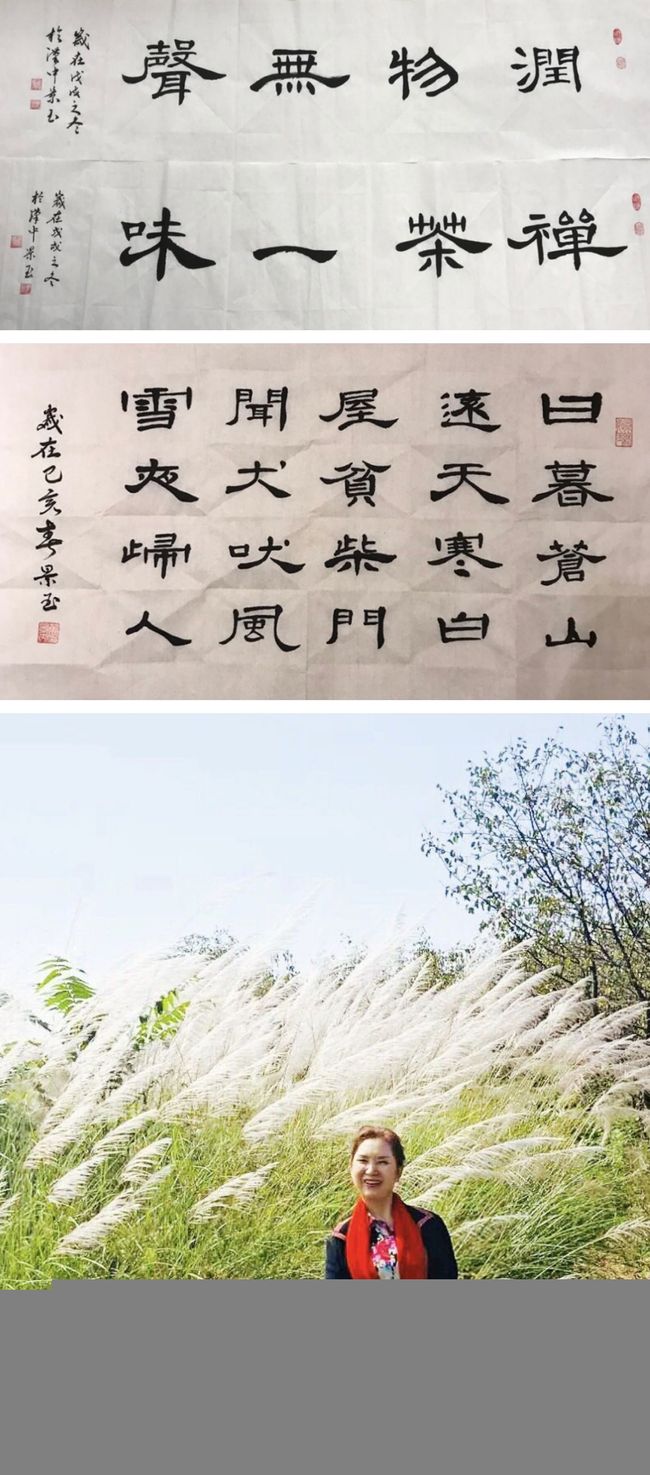 潤物無聲
歲在戊戌之冬
於漢中景玉
禪茶一味
歲在戊戌之冬
於漢中景玉
日暮蒼山
遠天寒白
屋貧柴門
聞犬吠風
雪夜歸人
歲在己亥春景玉